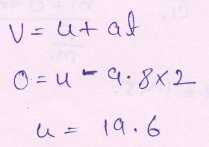 V = u + at
0 = u - 9.8 × 2
u = 19.6